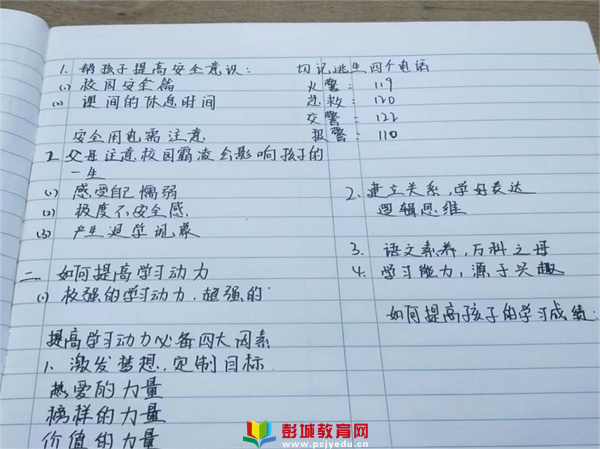 1. 帮孩子提高安全意识:
(1) 校园安全篇
(2) 课间的休息时间
安全用电需注意
2. 父母注意校园霸凌会影响孩子的
一生
(1) 感受自己懦弱
(2) 极度不安全感.
(3) 产生退学现象
二、如何提高学习动力
(1) 校强的学习动力,超强的
提高学习动力必备四大因素
1、激发梦想,定制目标
热爱的力量
榜样的力量
价值的力量
切记逃生四个电话
火警: 119
急救: 120
交警: 122
报警: 110
2. 建立关系,学好表达
逻辑思维
3. 语文素养,万科之母
4. 学习能力,源于兴趣
如何提高孩子的学习成绩:
彭城教育网
www.pcjyedu.cn